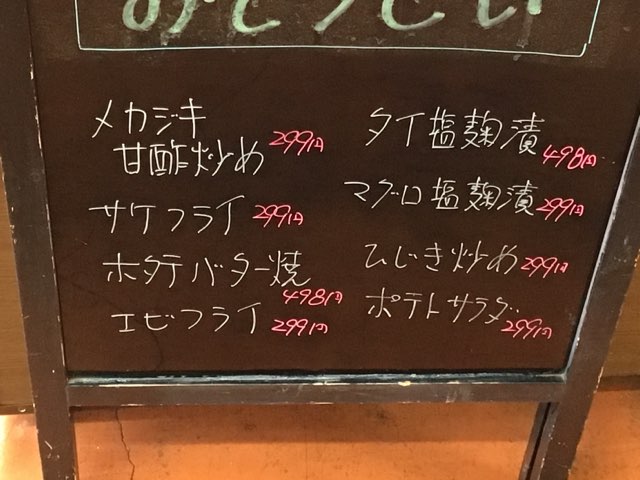 メカジキ
甘酢炒め 299円
サケフライ 299円
ホタテバター焼
498円
エビフライ 299円
タイ塩麹漬
498円
マグロ塩麹漬 299円
ひじき炒め 299円
ポテトサラダ
299円